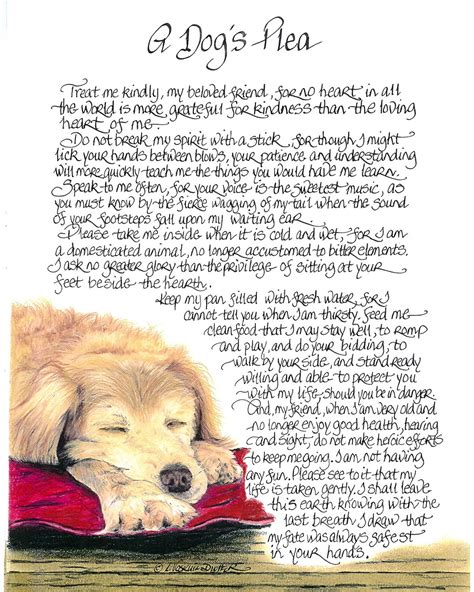 A Dog's Plea
Treat me kindly, my beloved friend, for no heart in all
the world is more grateful for kindness than the loving
heart of me.
Do not break my spirit with a stick, for though I might
lick your hands between blows, your patience and understanding
will more quickly teach me the things you would have me learn.
Speak to me often, for your voice is the sweetest music, as
you must know by the fierce wagging of my tail when the sound
of your footsteps fall upon my waiting ear.
Please take me inside when it is cold and wet, for I am
a domesticated animal, no longer accustomed to bitter elements.
I ask no greater glory than the privilege of sitting at your
feet beside the hearth.
Keep my pan filled with fresh water, for I
cannot tell you when I am thirsty. Feed me
clean food that I may stay well, to romp
and play, and do your bidding, to
walk by your side, and stand ready
willing and able to protect you
with my life, should you be in danger.
And, my friend, when I am very old and
no longer enjoy good health, hearing
and sight, do not make heroic efforts
to keep me going. I am not having
any fun. Please see to it that my
life is taken gently. I shall leave
this earth knowing with the
last breath I draw that
my fate was always safest
in your hands.
©